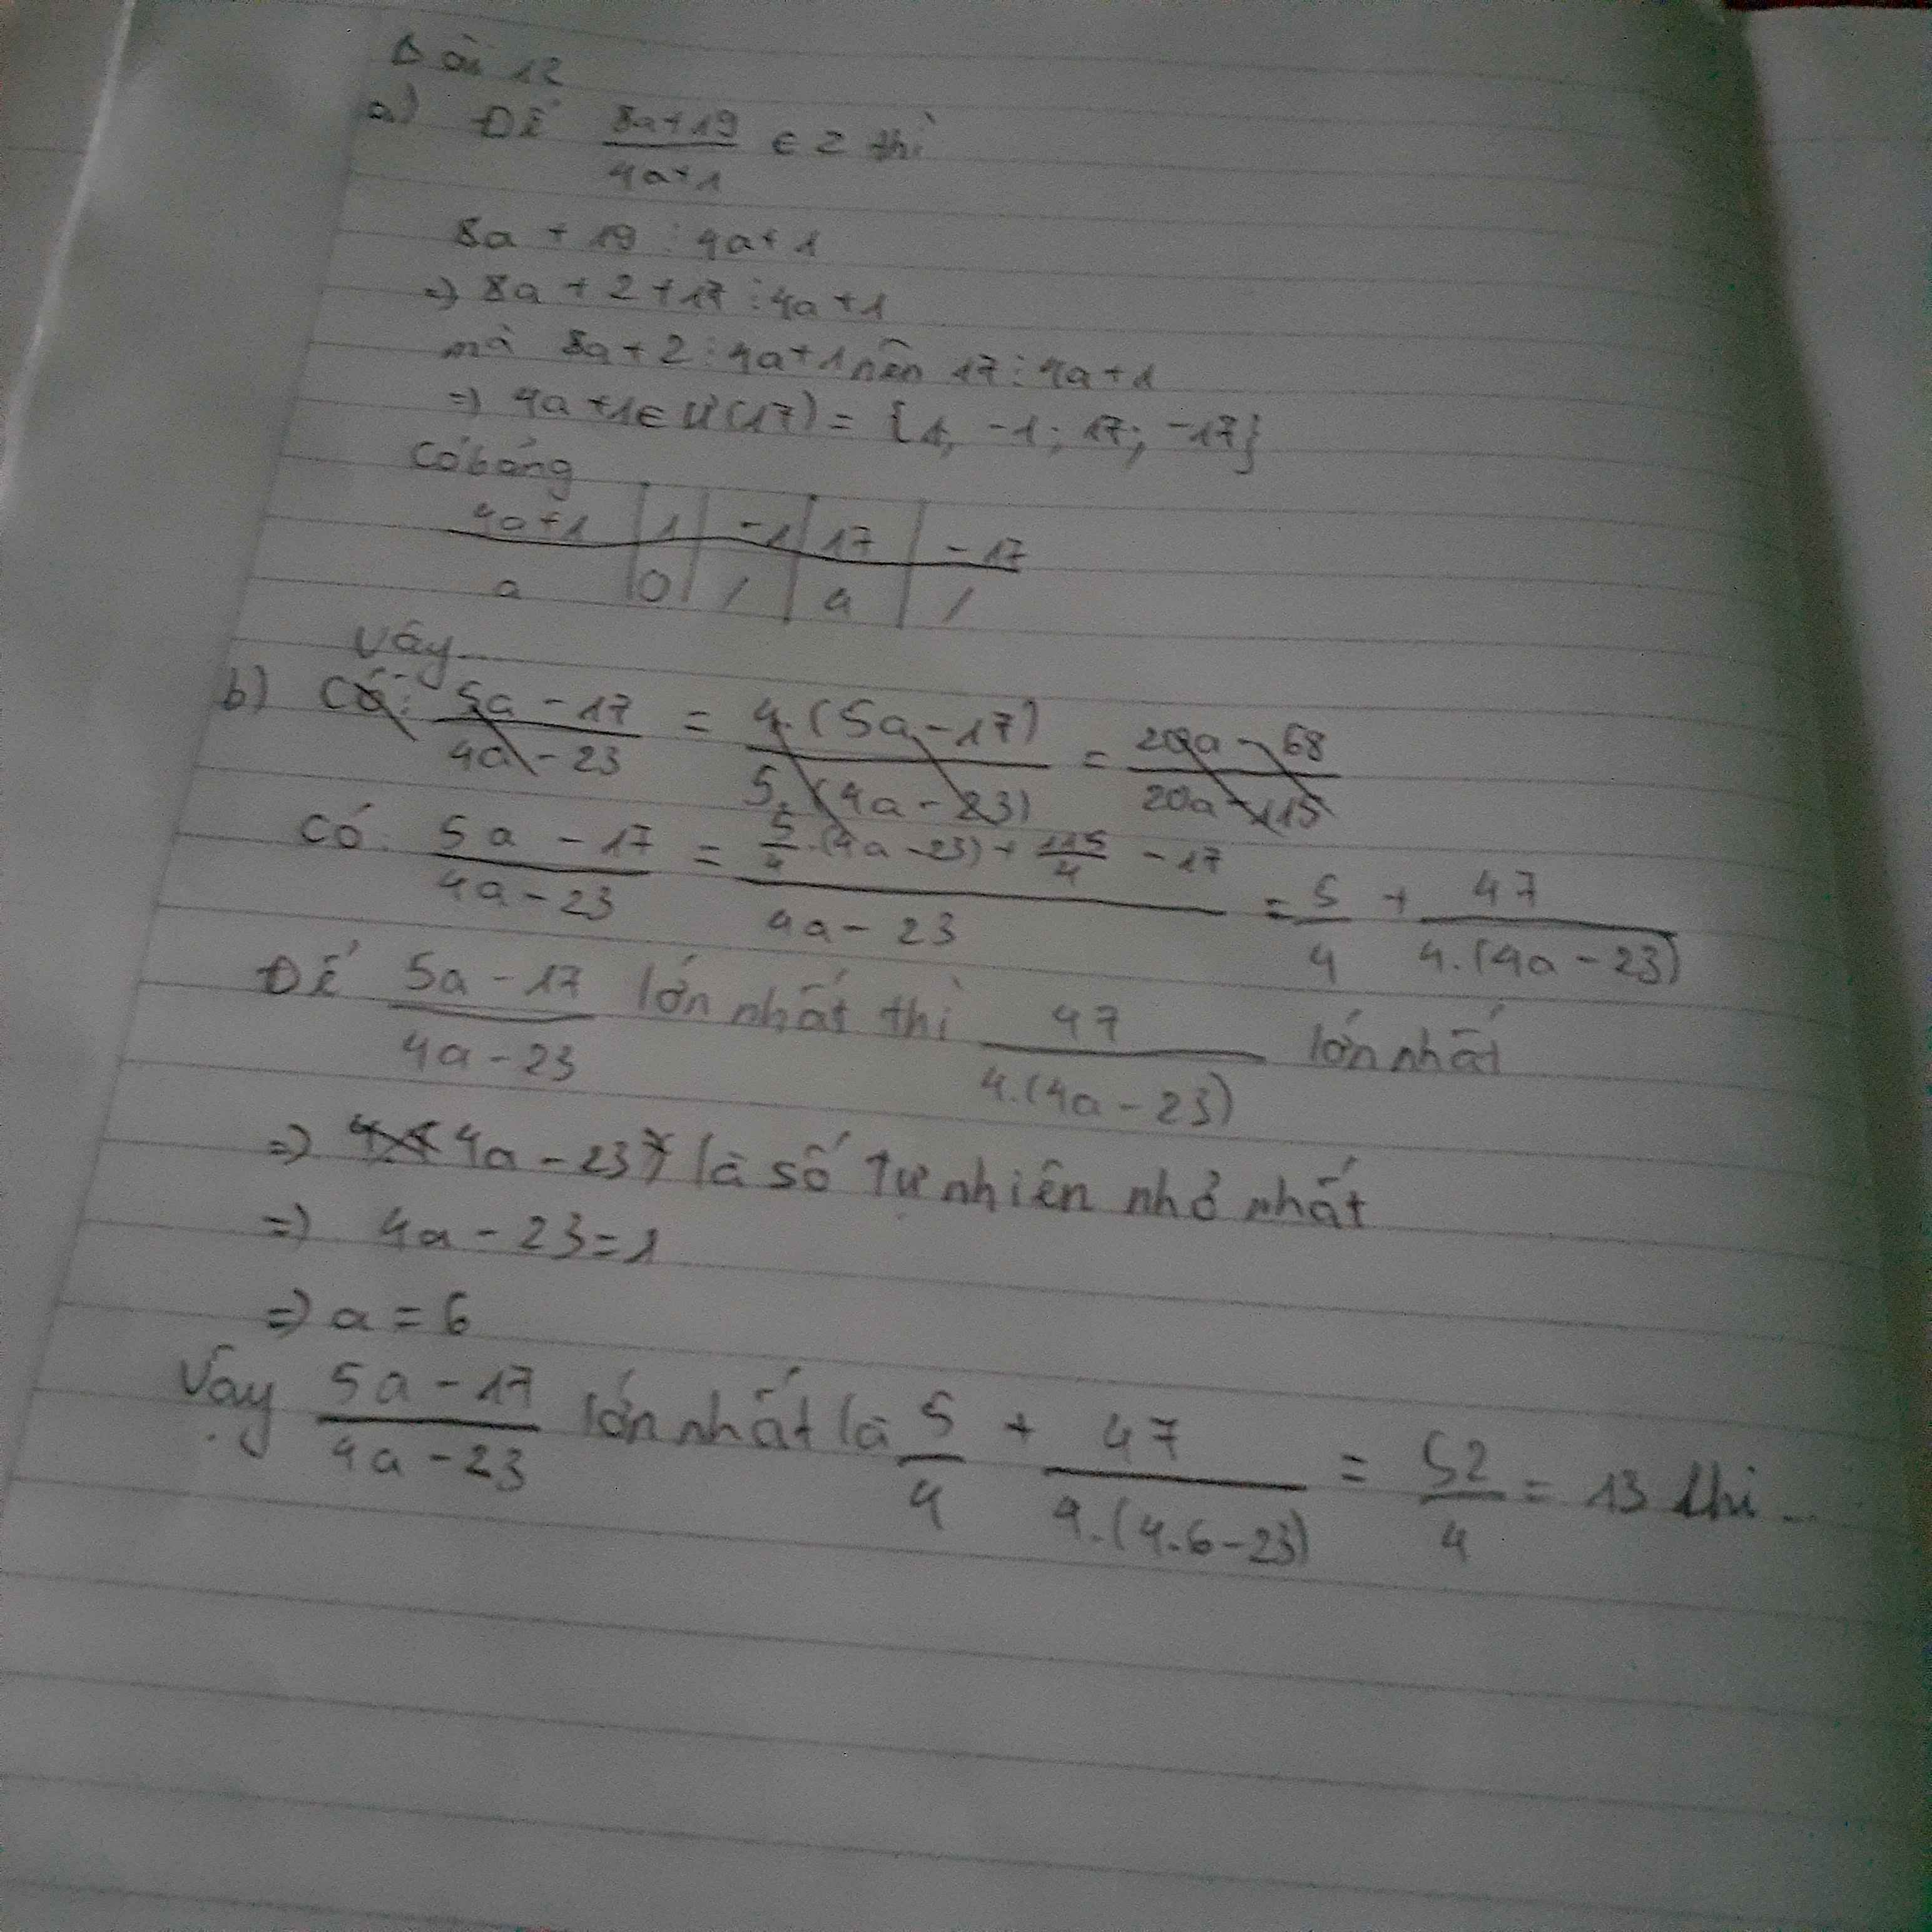 Bài 12
a) Để (8a+19)/(4a+1) ∈ Z thì
8a + 19 ⋮ 4a+1
=> 8a + 2 + 17 ⋮ 4a+1
mà 8a+2 ⋮ 4a+1 nên 17 ⋮ 4a+1
=> 4a+1 ∈ Ư(17) = {1, -1; 17; -17}
Có bảng
4a+1 | 1 | -1 | 17 | -17
a | 0 | / | 4 | /
Vậy...
b) Có: (5a-17)/(4a-23) = (4.(5a-17))/(5.(4a-23)) = (20a-68)/(20a-115)
Có (5a-17)/(4a-23) = (5/4.(4a-23)+115/4-17)/(4a-23) = 5/4 + 47/(4.(4a-23))
Để (5a-17)/(4a-23) lớn nhất thì 47/(4.(4a-23)) lớn nhất
=> 4a-23 là số tự nhiên nhỏ nhất
=> 4a-23=1
=> a=6
Vậy (5a-17)/(4a-23) lớn nhất là 5/4 + 47/(4.(4.6-23)) = 52/4 = 13 khi...